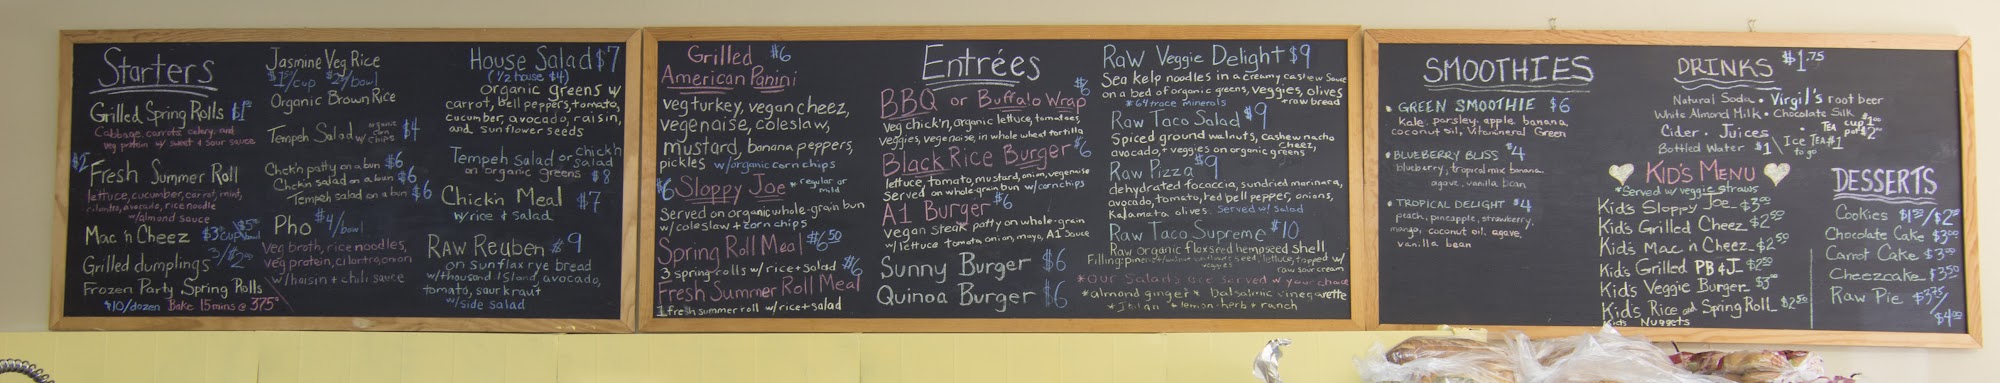 Starters
Grilled Spring Rolls $1⁵⁰
Cabbage, carrots, celery, and
veg protein w/ sweet & sour sauce
$2 Fresh Summer Roll
lettuce, cucumber, carrot, mint,
cilantro, avocado, rice noodle
w/almond sauce
Mac 'n Cheez $3⁰⁰ cup $5⁰⁰ bowl
Grilled dumplings 3/$2⁰⁰
Frozen Party Spring Rolls
$10/dozen Bake 15 mins @ 375°
Jasmine Veg Rice
$1⁵⁰/cup $2⁵⁰/bowl
Organic Brown Rice
Tempeh Salad w/ organic corn chips $4
Chick'n patty on a bun $6
Chick'n salad on a bun $6
Tempeh salad on a bun $6
Pho $4/bowl
Veg broth, rice noodles,
veg protein, cilantro, onion
w/hoisin + chili sauce
House Salad $7
(1/2 house $4)
organic greens w/
carrot, bell peppers, tomato,
cucumber, avocado, raisin,
and sunflower seeds
Tempeh salad or chick'n salad
on organic greens $8
Chick'n Meal $7
w/rice & salad
Raw Reuben $9
on sunflax rye bread
w/thousand island, avocado,
tomato, sour kraut
w/side salad
Grilled $6
American Panini
veg turkey, vegan cheez,
vegenaise, coleslaw,
mustard, banana peppers,
pickles w/organic corn chips
$6 Sloppy Joe *regular or mild
Served on organic whole-grain bun
w/coleslaw + corn chips
Spring Roll Meal $6⁵⁰
3 spring rolls w/rice + salad
Fresh Summer Roll Meal $6
1 fresh summer roll w/rice + salad
Entrées
BBQ or Buffalo Wrap $6
Veg chick'n, organic lettuce, tomatoes,
veggies, vegenaise in whole wheat tortilla
Black Rice Burger $6
lettuce, tomato, mustard, onion, vegenaise
Served on whole-grain bun w/cornchips
A1 Burger $6
vegan steak patty on whole-grain
w/lettuce tomato, onion, mayo, A1 Sauce
Sunny Burger $6
Quinoa Burger $6
Raw Veggie Delight $9
Sea kelp noodles in a creamy cashew sauce
on a bed of organic greens, veggies, olives
*64 trace minerals +raw bread
Raw Taco Salad $9
Spiced ground walnuts, cashew nacho cheez,
avocado, + veggies on organic greens
Raw Pizza $9
dehydrated focaccia, sundried marinara,
avocado, tomato, red bell pepper, onions,
Kalamata olives. Served w/ salad
Raw Taco Supreme $10
Raw organic flaxseed hempseed shell,
lettuce, topped w/ veggies raw sour cream
*Our Salads are served w/ your choice
*almond ginger * balsamic vinegarette
*Italian *lemon-herb *ranch
SMOOTHIES
• GREEN SMOOTHIE $6
Kale, parsley, apple, banana,
coconut oil, Vitamineral Green
• BLUEBERRY BLISS $4
blueberry, tropical mix, banana,
agave, vanilla bean
• TROPICAL DELIGHT $4
peach, pineapple, strawberry,
mango, coconut oil, agave,
vanilla bean
DRINKS $1.75
Natural Soda • Virgil's root beer
White Almond Milk • Chocolate Silk
Cider • Juices • TEA cup $1⁰⁰ pot $2⁰⁰
Bottled Water $1 Ice TEA $1 to go
KID'S MENU
*Served w/ veggie straws
Kid's Sloppy Joe $3⁰⁰
Kid's Grilled Cheez $2⁵⁰
Kid's Mac 'n Cheez $2⁵⁰
Kid's Grilled PB & J $2⁵⁰
Kid's Veggie Burger $3⁰⁰
Kid's Rice and Spring Roll $2⁵⁰
Kid's Nuggets
DESSERTS
Cookies $1⁵⁰/$2⁵⁰
Chocolate Cake $3⁰⁰
Carrot Cake $3⁰⁰
Cheezcake $3⁵⁰
Raw Pie $3⁷⁵/$4⁰⁰